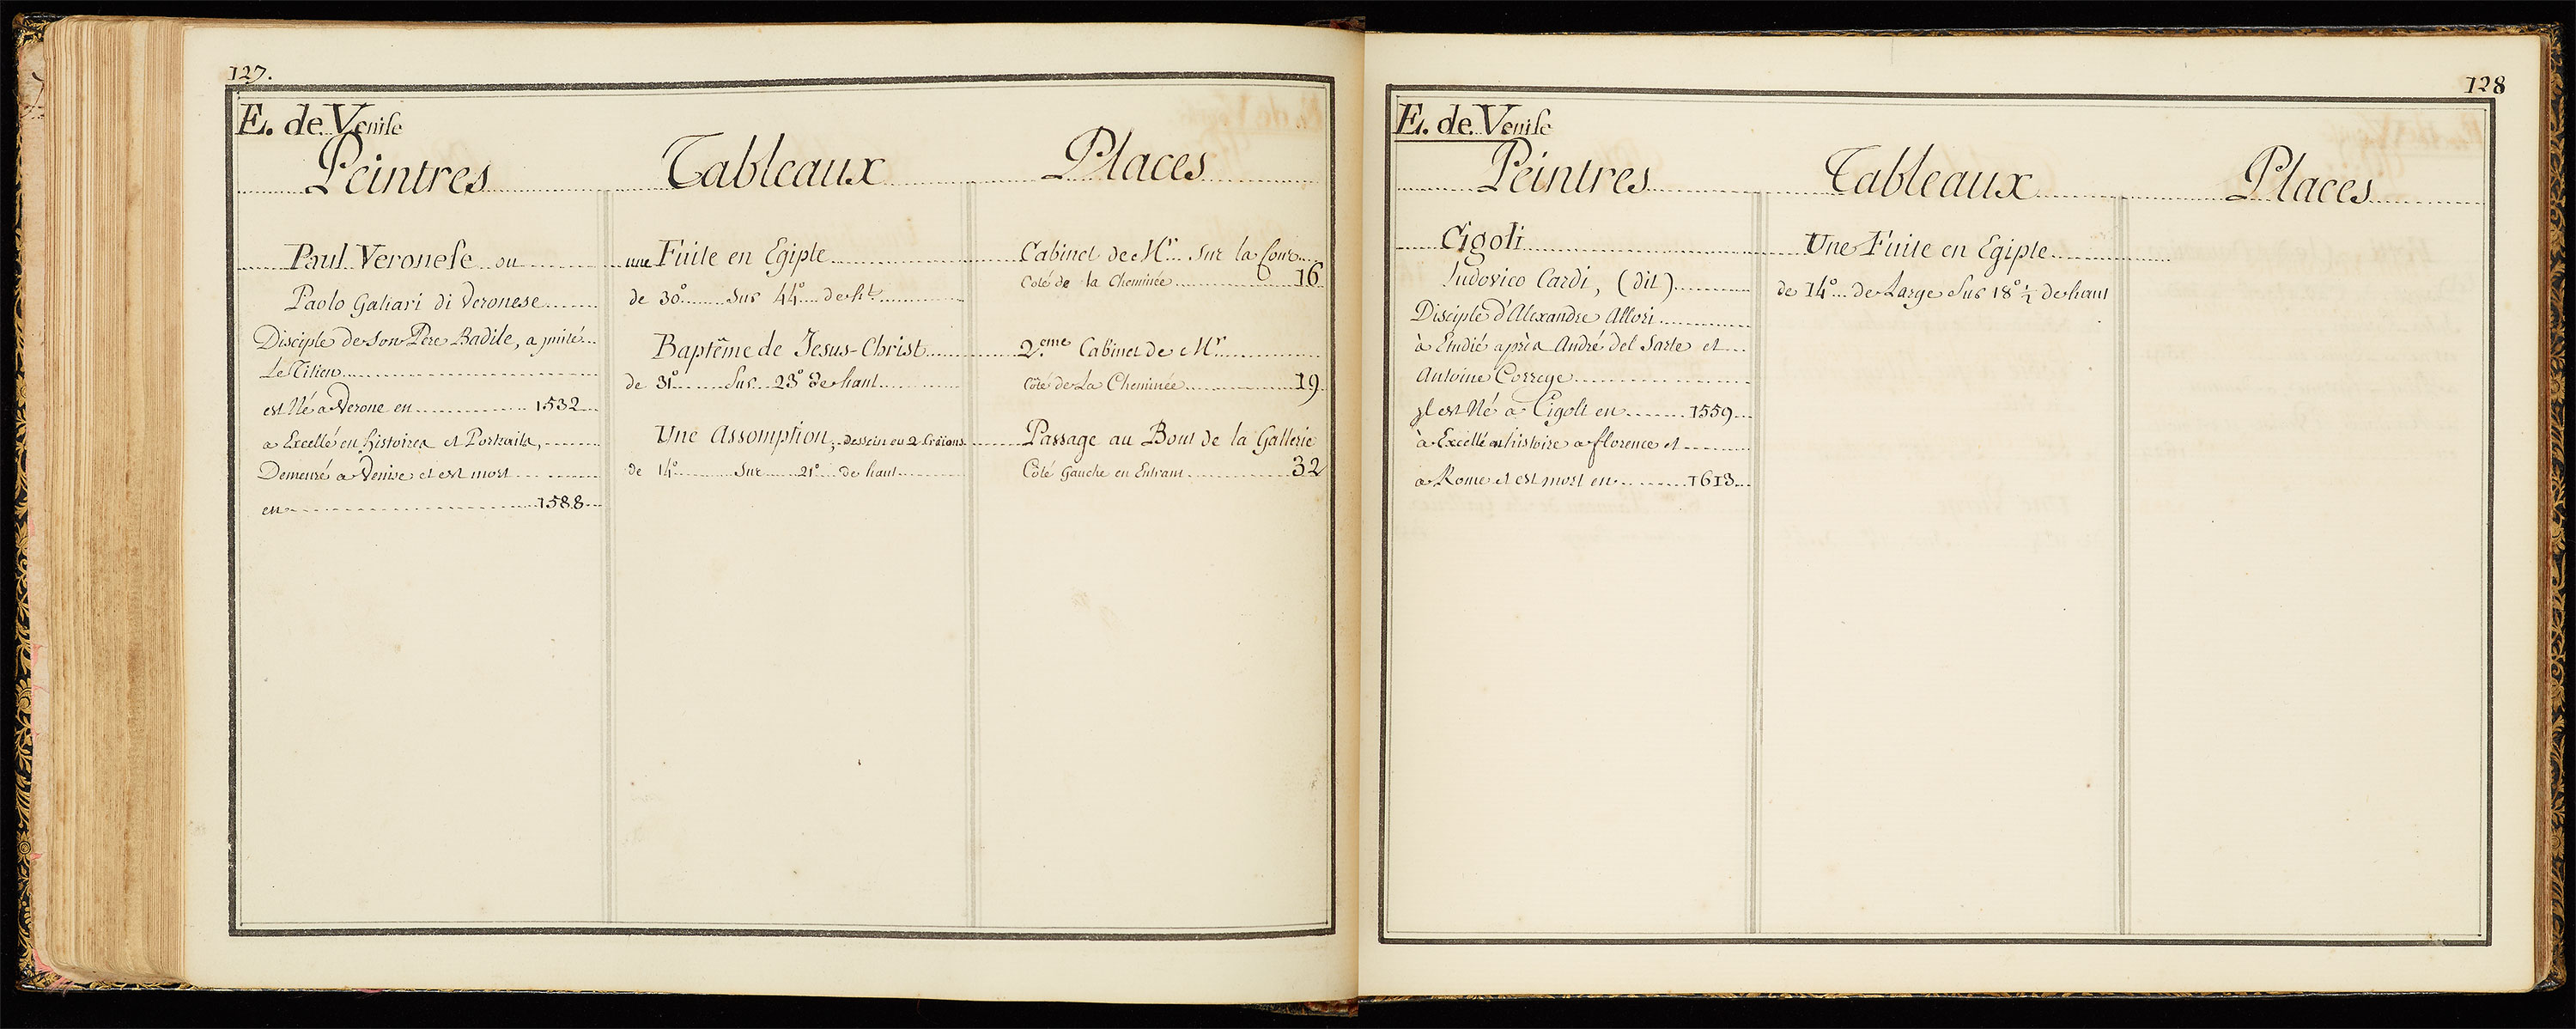 127.
E. de Venise
Peintres
Tableaux
Places
Paul Veronese ou
Paolo Galiari di Veronese
Disciple de Son Pere Badile, a imité
Le Titien
est Né a Verone en 1532
a Excellé en histoires et Portraits,
Demeuré a Venise et est mort
en 1588
une Fuite en Egipte
de 30° Sur 44° de ht
Baptême de Jesus-Christ
de 31° Sur 23° de haut
Une Assomption, dessein en 2 Craions
de 14° Sur 21° de haut
Cabinet de Mr Sur la Cour
Coté de la Cheminée 16
2.eme Cabinet de Mr
Côté de La Cheminée 19
Passage au Bout de la Gallerie
Côté Gauche en Entrant 32
128
E. de Venise
Peintres
Tableaux
Places
Cigoli
Ludovico Cardi, (dit)
Disciple d'Alexandre Allori
à Etudié après André del Sarte et
Antoine Correge
jl est Né a Cigoli en 1559
à Excellé en histoire a florence et
a Rome et est mort en 1613
Une Fuite en Egipte
de 14° de Large Sur 18° 1/2 de haut